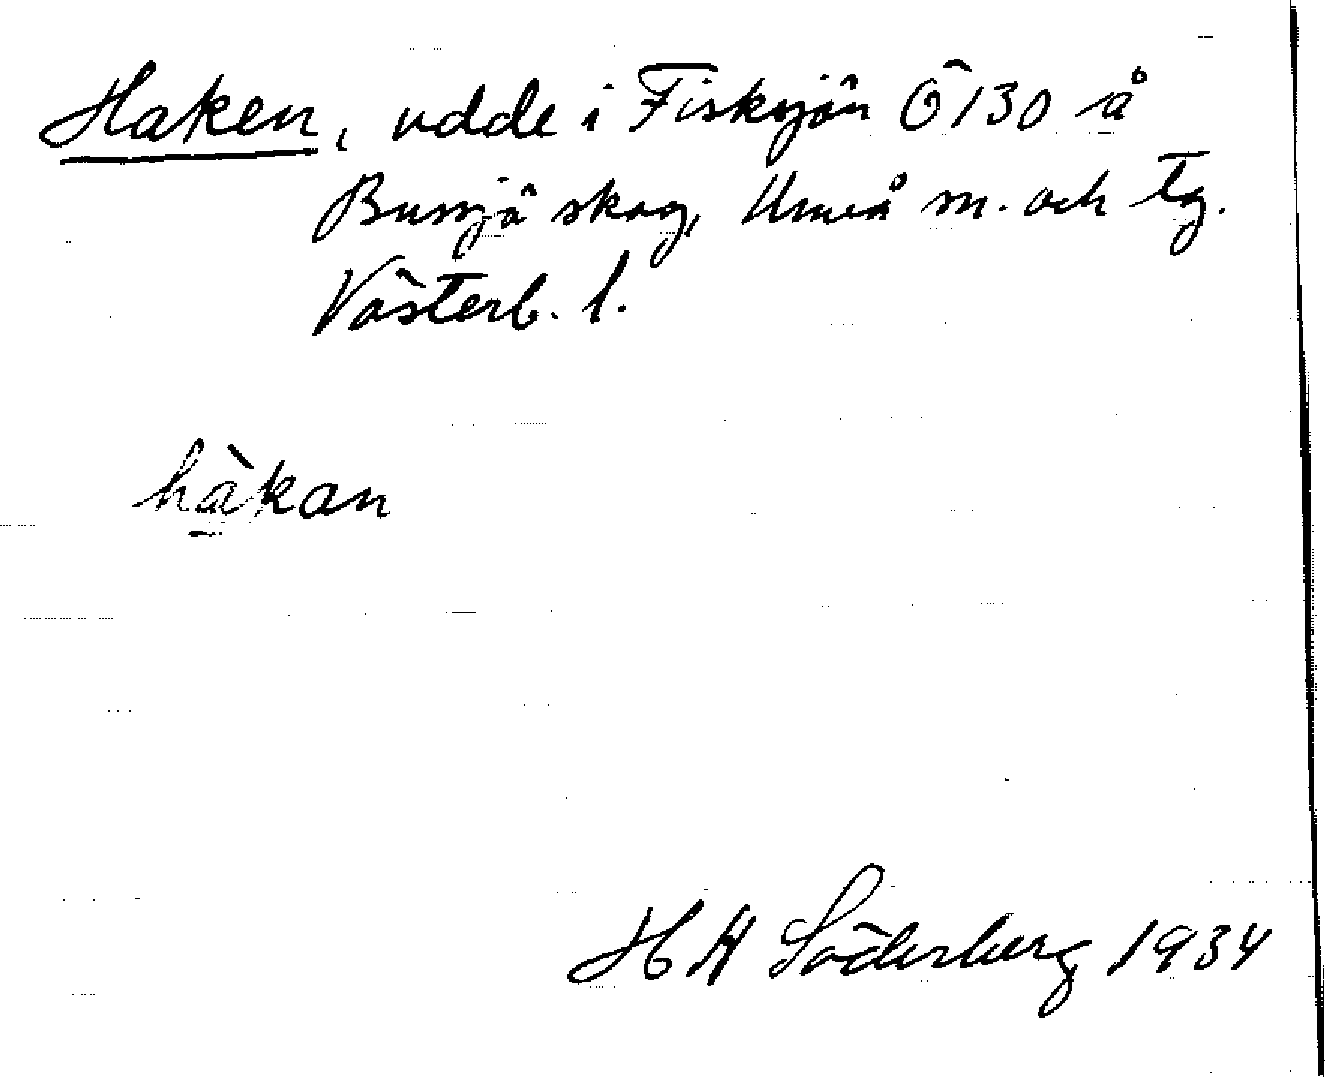 Haken, udde i Fisksjön Ö130 å
Bussjö skog, Umeå sn. och tg.
Västerb. l.
hàkan
H A Söderberg 1934